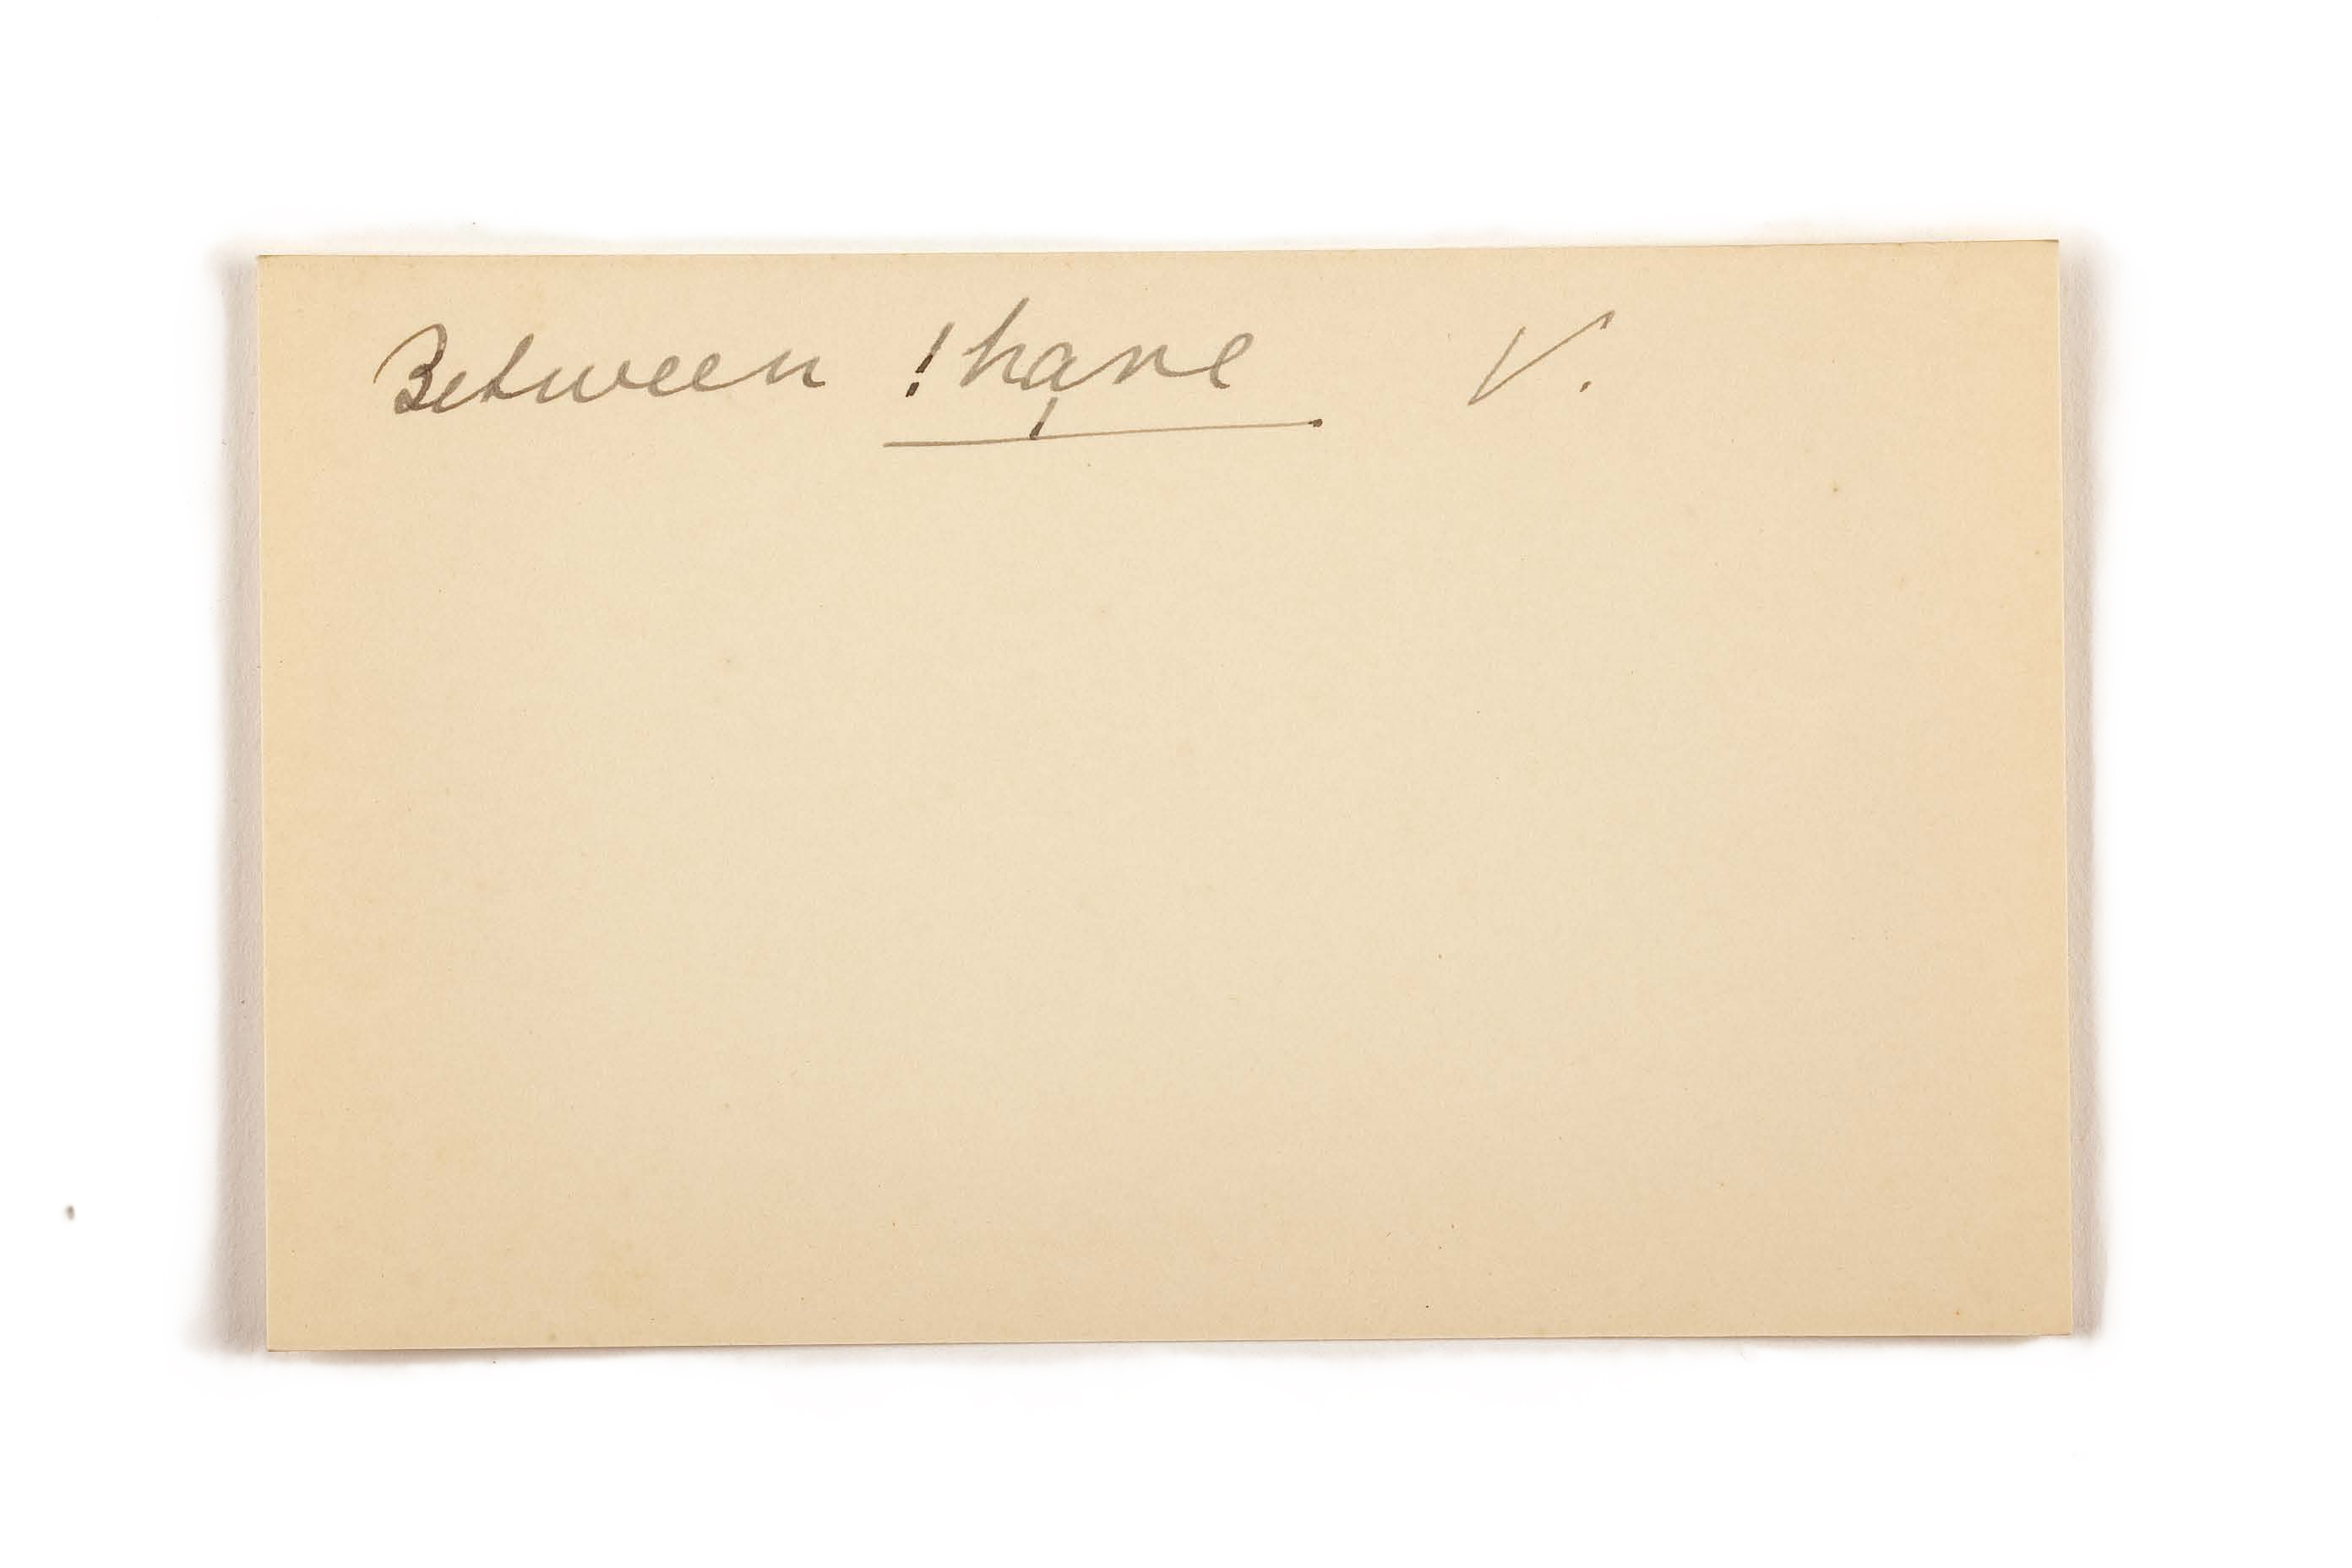 Between !ha̩ne V.